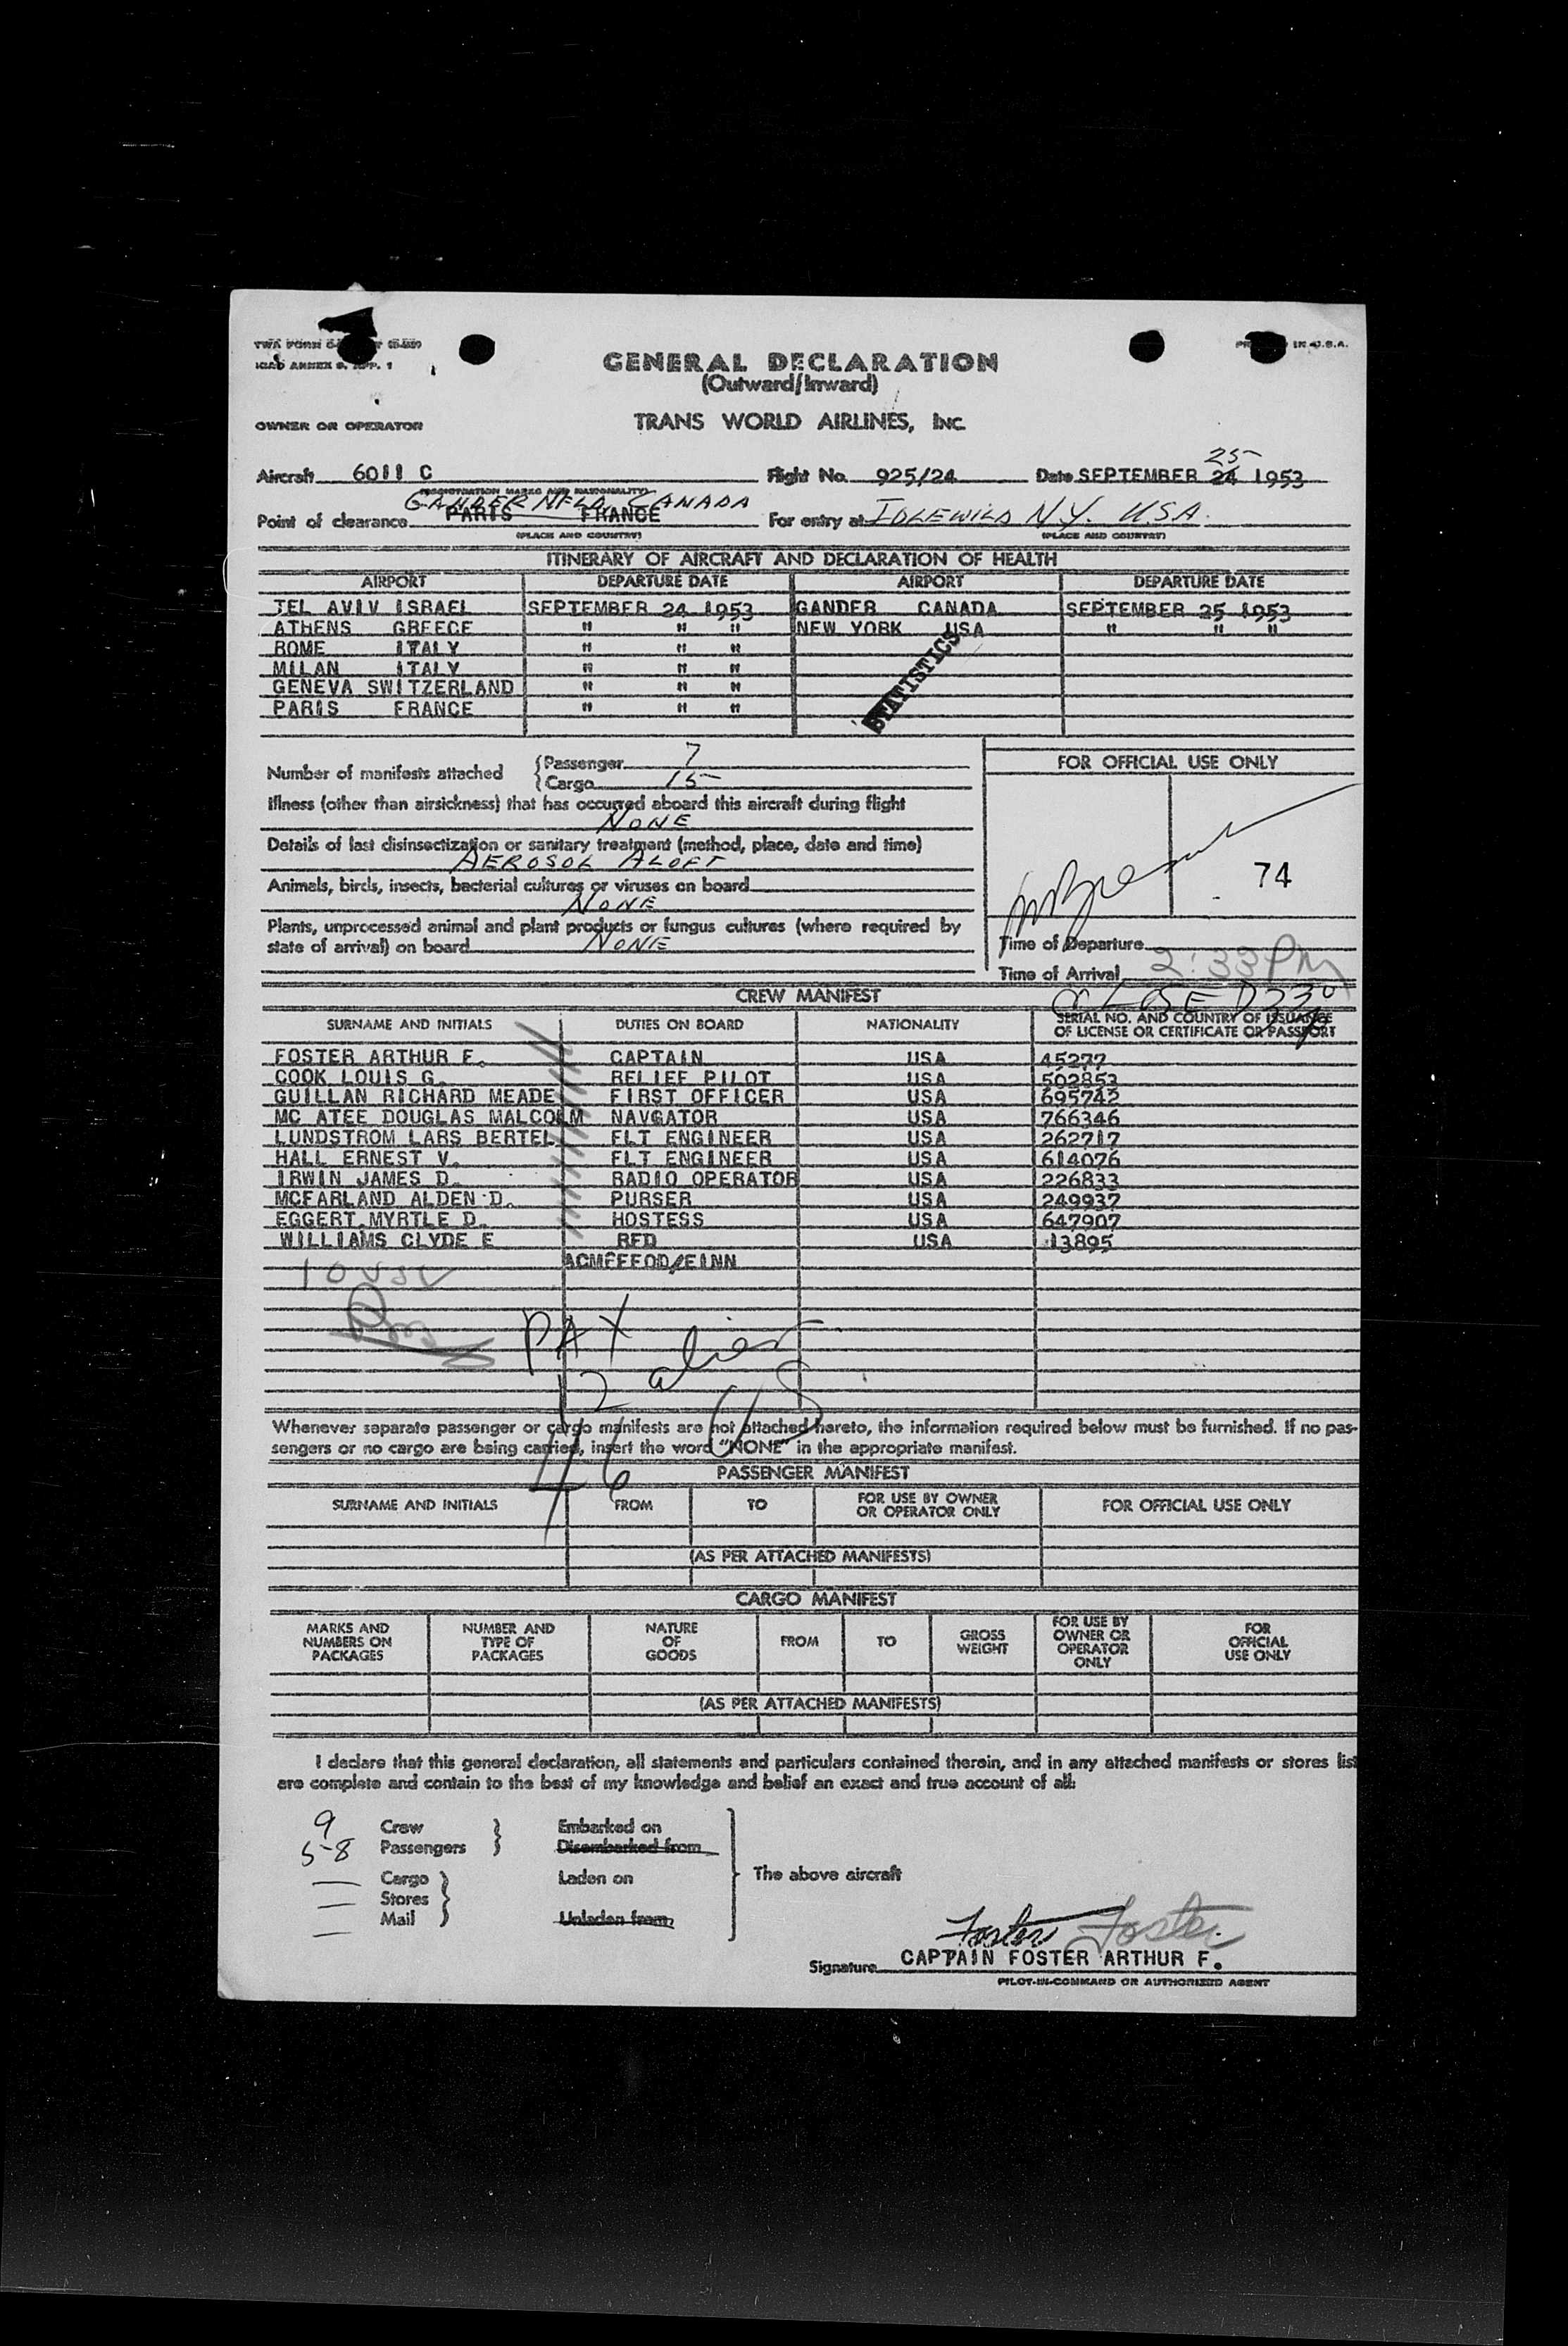 GENERAL DECLARATION
(Outward/Inward)
ICAO ANNEX 9, APP. 1
OWNER OR OPERATOR TRANS WORLD AIRLINES, Inc.
25
Aircraft 6011 C Flight No. 925/24 Date SEPTEMBER 24 1953
(REGISTRATION MARKS AND NATIONALITY)
GANDER NFLD. CANADA
Point of clearance PARIS FRANCE For entry at IDLEWILD N.Y. U.S.A.
(PLACE AND COUNTRY) (PLACE AND COUNTRY)
ITINERARY OF AIRCRAFT AND DECLARATION OF HEALTH
AIRPORT DEPARTURE DATE AIRPORT DEPARTURE DATE
TEL AVIV ISRAEL SEPTEMBER 24 1953 GANDER CANADA SEPTEMBER 25 1953
ATHENS GREECE " " " NEW YORK USA " " "
ROME ITALY " " "
MILAN ITALY " " "
GENEVA SWITZERLAND " " "
PARIS FRANCE " " "
STATISTICS
Number of manifests attached { Passenger 7
{ Cargo 15
FOR OFFICIAL USE ONLY
Illness (other than airsickness) that has occurred aboard this aircraft during flight
NONE
Details of last disinsectization or sanitary treatment (method, place, date and time)
AEROSOL ALOFT
74
Animals, birds, insects, bacterial cultures or viruses on board
NONE
Plants, unprocessed animal and plant products or fungus cultures (where required by
state of arrival) on board NONE
Time of Departure
Time of Arrival 2:33 PM
CLOSED
CREW MANIFEST
SURNAME AND INITIALS DUTIES ON BOARD NATIONALITY SERIAL NO. AND COUNTRY OF ISSUANCE
OF LICENSE OR CERTIFICATE OR PASSPORT
FOSTER ARTHUR F. CAPTAIN USA 45277
COOK LOUIS G. RELIEF PILOT USA 502853
GUILLAN RICHARD MEADE FIRST OFFICER USA 695742
MC ATEE DOUGLAS MALCOLM NAVGATOR USA 766346
LUNDSTROM LARS BERTEL FLT ENGINEER USA 262717
HALL ERNEST V. FLT ENGINEER USA 614076
IRWIN JAMES D. RADIO OPERATOR USA 226833
MCFARLAND ALDEN D. PURSER USA 249937
EGGERT MYRTLE D. HOSTESS USA 647907
WILLIAMS CLYDE E RFD USA 13895
10 USC
PAX
12 alien
46 US
Whenever separate passenger or cargo manifests are not attached hereto, the information required below must be furnished. If no pas-
sengers or no cargo are being carried, insert the word "NONE" in the appropriate manifest.
PASSENGER MANIFEST
SURNAME AND INITIALS FROM TO FOR USE BY OWNER
OR OPERATOR ONLY FOR OFFICIAL USE ONLY
(AS PER ATTACHED MANIFESTS)
CARGO MANIFEST
MARKS AND
NUMBERS ON
PACKAGES NUMBER AND
TYPE OF
PACKAGES NATURE
OF
GOODS FROM TO GROSS
WEIGHT FOR USE BY
OWNER OR
OPERATOR
ONLY FOR
OFFICIAL
USE ONLY
(AS PER ATTACHED MANIFESTS)
I declare that this general declaration, all statements and particulars contained therein, and in any attached manifests or stores list
are complete and contain to the best of my knowledge and belief an exact and true account of all:
9 Crew } Embarked on
58 Passengers } Disembarked from
— Cargo } Laden on The above aircraft
— Stores }
— Mail } Unladen from
Foster Foster
Signature CAPTAIN FOSTER ARTHUR F.
PILOT-IN-COMMAND OR AUTHORIZED AGENT